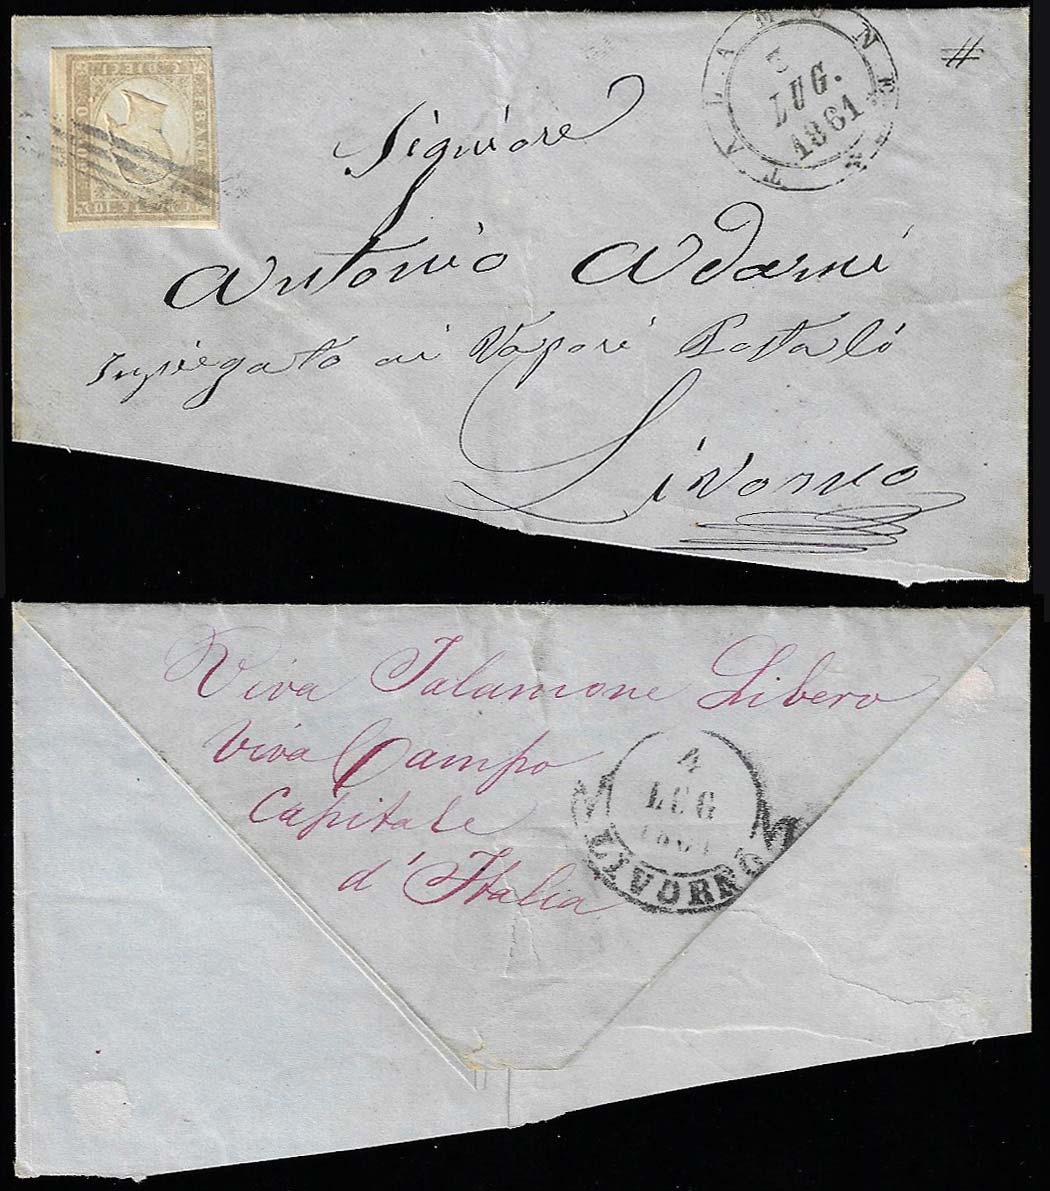 TALAMONE
3
LUG.
1861
C. DIECI
Signiore
Antonio Adami
Inpiegato ai Vapori Postali
Livorno
Viva Talamone Libero
Viva Campo
Capitale
d'Italia
4
LUG
1861
LIVORNO